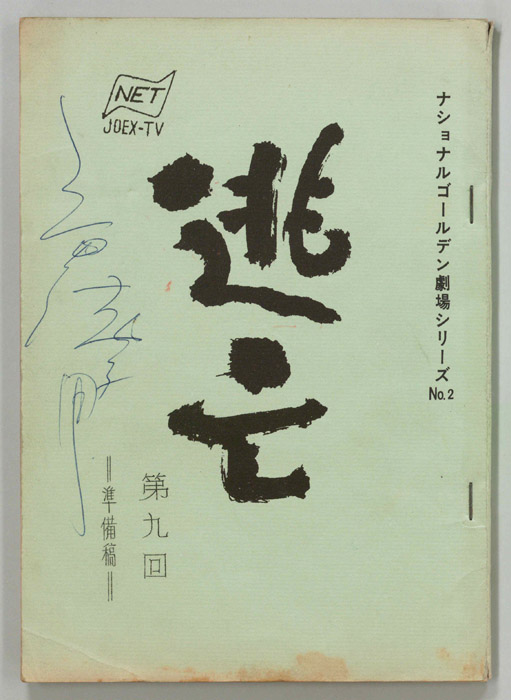 ナショナルゴールデン劇場シリーズ No.2
NET
JOEX-TV
逃亡
第九回
＝準備稿＝